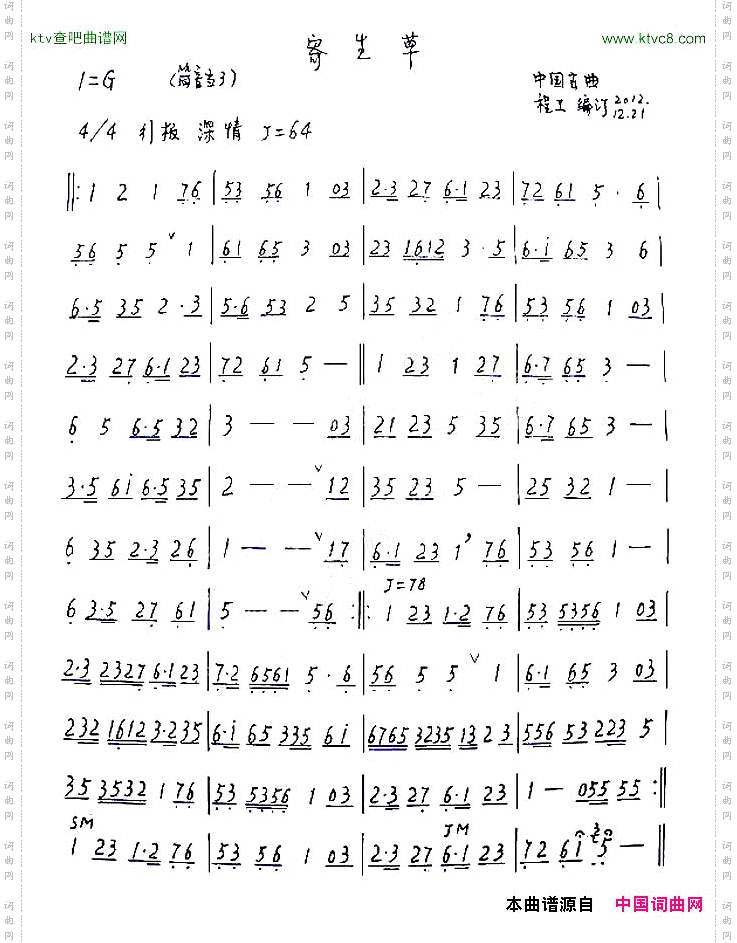 ktv查吧曲谱网
www.ktvc8.com
寄生草
1=G (筒音当3)
中国古曲
程工 编订 2012.12.21
4/4 引板 深情 J=64
‖: 1 2 1 76 | 53 56 1 03 | 2·3 27 6·1 23 | 72 61 5 · 6 |
56 5 5 ∨ 1 | 61 65 3 03 | 23 1612 3 · 5 | 6·i 65 3 6 |
6·5 35 2·3 | 5·6 53 2 5 | 35 32 1 76 | 53 56 1 03 |
2·3 27 6·1 23 | 72 61 5 — ‖ 1 23 1 27 | 6·7 65 3 — |
6 5 6·5 32 | 3 — — 03 | 21 23 5 35 | 6·7 65 3 — |
3·5 6i 6·5 35 | 2 — — ∨ 12 | 35 23 5 — | 25 32 1 — |
6 35 2·3 26 | 1 — — ∨ 17 | 6·1 23 1 ’ 76 | 53 56 1 — |
J=78
6 3·5 27 61 | 5 — — ∨ 56 :‖: 1 23 1·2 76 | 53 5356 1 03 |
2·3 2327 6·1 23 | 7·2 6561 5 · 6 | 56 5 5 ∨ 1 | 6·1 65 3 03 |
232 1612 3·235 | 6·i 65 335 6i | 6765 3235 13 2 3 | 556 53 223 5 |
35 3532 1 76 | 53 5356 1 03 | 2·3 27 6·1 23 | 1 — 055 55 :‖
SM JM
1 23 1·2 76 | 53 56 1 03 | 2·3 27 6·1 23 | 72 6i 5 — ‖
本曲谱源自 中国词曲网